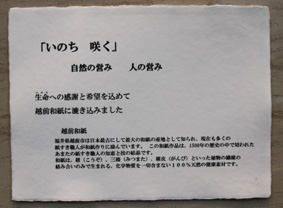 「いのち　咲く」
自然の営み　　人の営み
生命への感謝と希望を込めて
越前和紙に漉き込みました
越前和紙
福井県越前市は日本最古にして最大の和紙の産地として知られ、現在も多くの
紙すき職人が和紙作りに励んでいます。この和紙作品は、1500年の歴史の中で培われた
あまたの紙すき職人の知恵と技の結晶です。
和紙は、楮（こうぞ）、三椏（みつまた）、雁皮（がんぴ）といった植物の繊維の
絡み合いのみで生まれる、化学物質を一切含まない１００％天然の健康素材です。